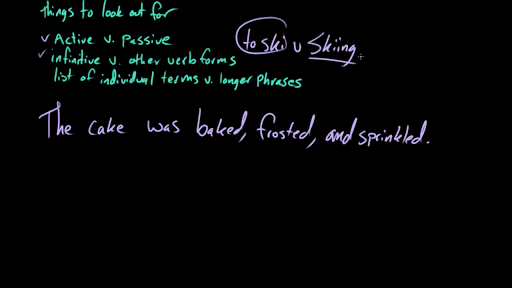 things to look out for
✓ Active v. Passive
✓ infinitive v. other verb forms
list of individual terms v. longer phrases
to ski v Skiing
The cake was baked, frosted, and sprinkled.